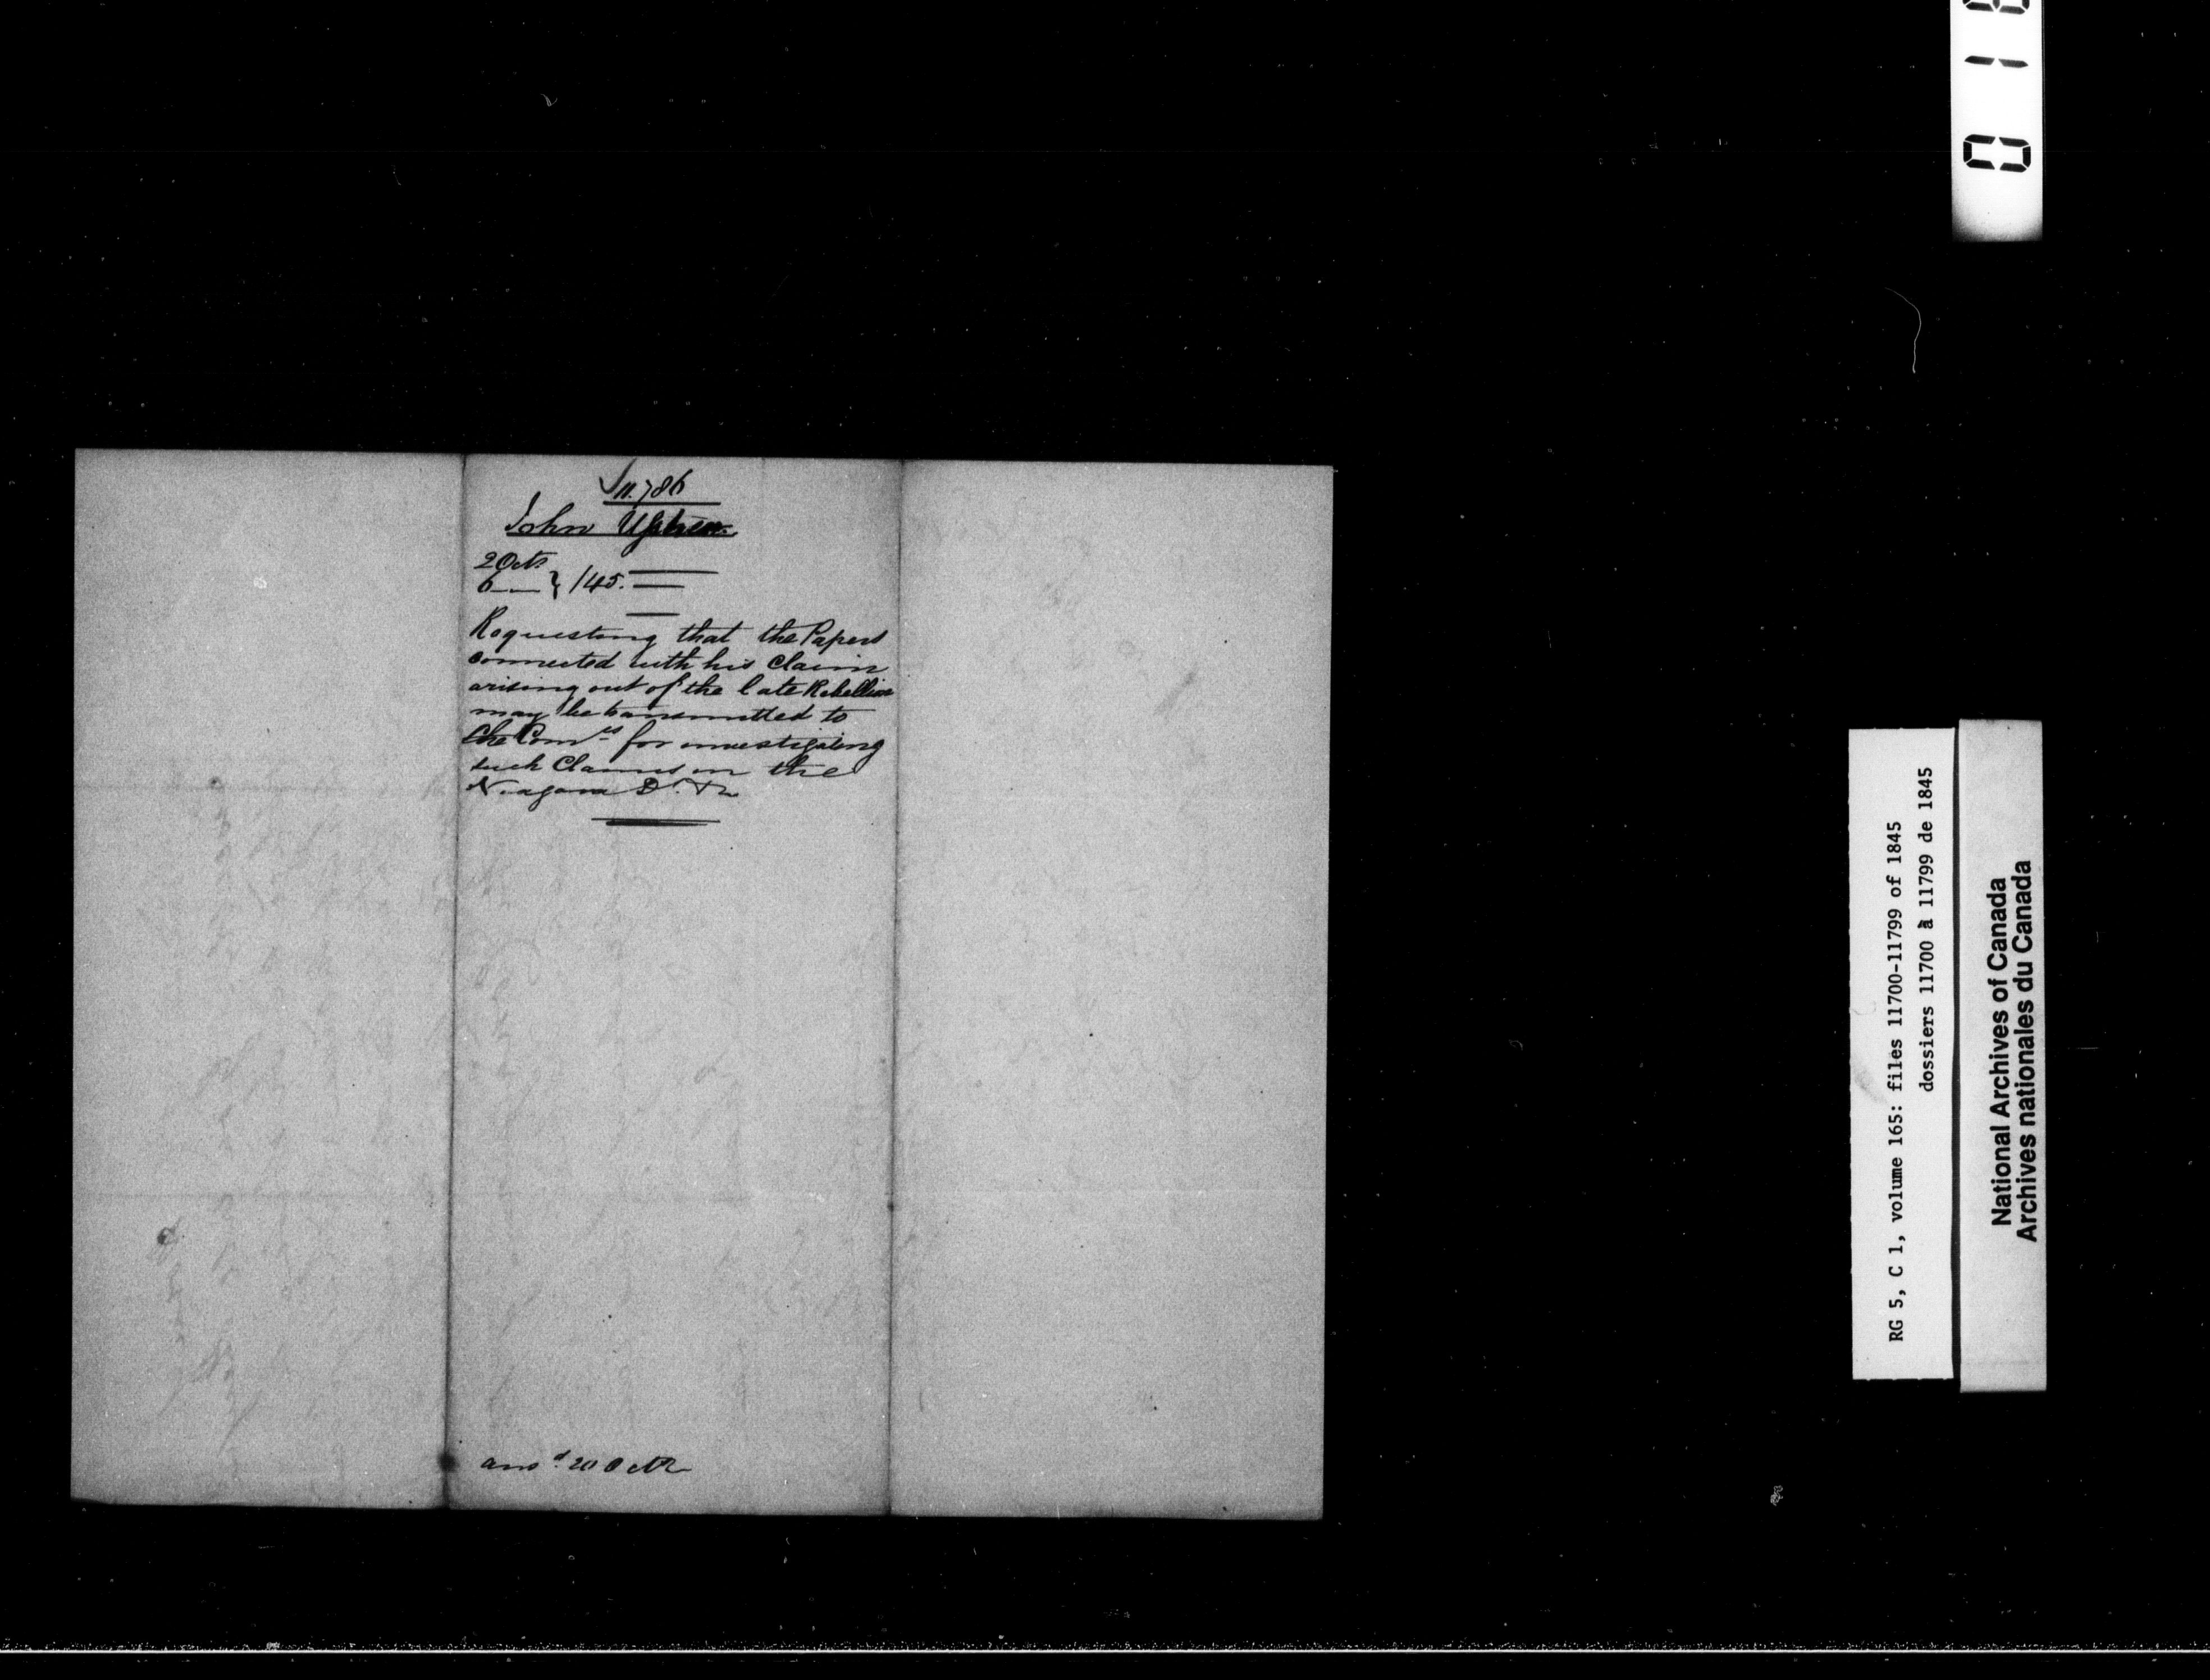 11.786
John
2 Octr
6 — } /45.
Requesting that the Papers
connected with his Claim
arising out of the late Rebellion
may be transmitted to
the Comrs for investigating
such Claims in the
Niagara Dt.
ansd 20 Octr
RG 5, C 1, volume 165: files 11700-11799 of 1845
dossiers 11700 à 11799 de 1845
National Archives of Canada
Archives nationales du Canada